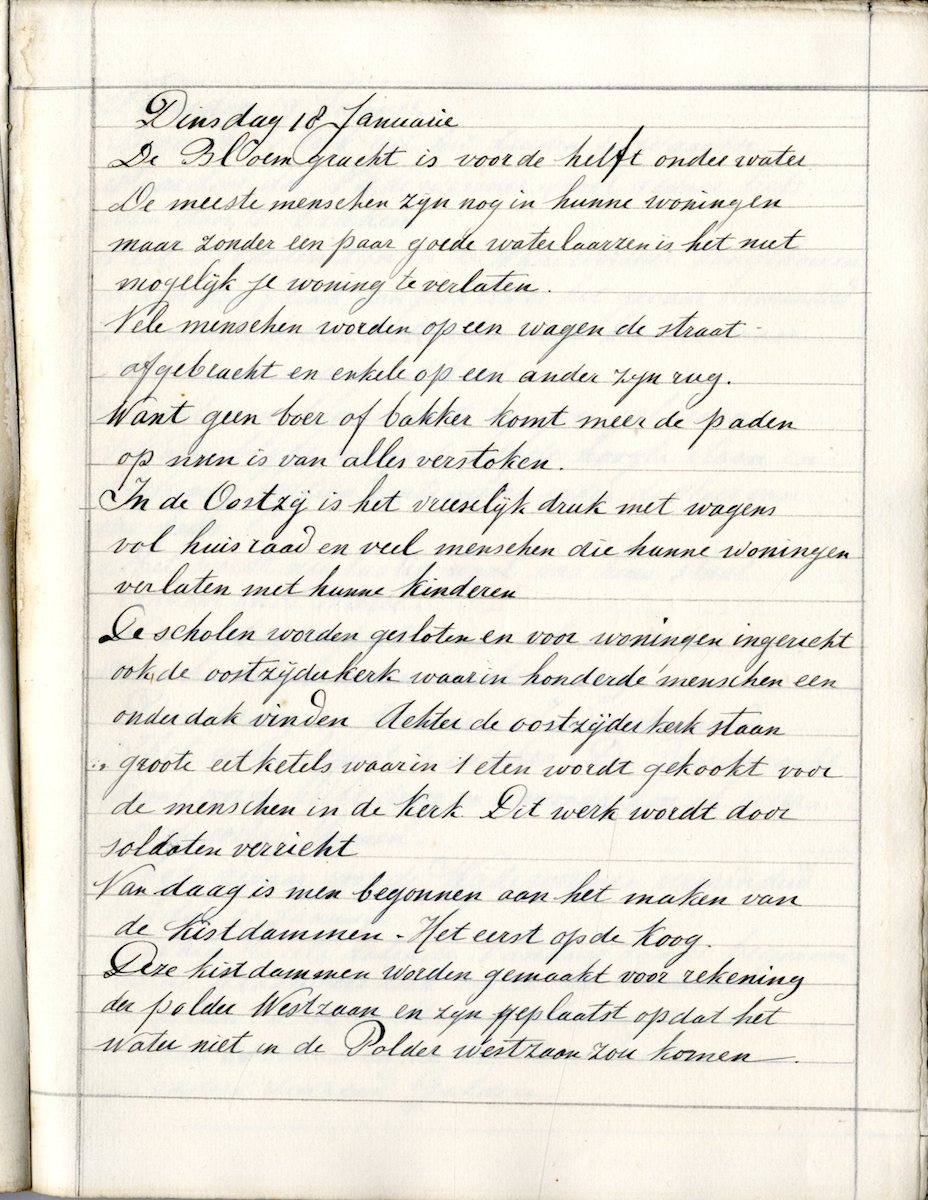 Dinsdag 18 Januarie
De Bloemgracht is voor de helft onder water
De meeste menschen zyn nog in hunne woningen
maar zonder een paar goede waterlaarzen is het niet
mogelijk je woning te verlaten.
Vele menschen worden op een wagen de straat
afgebracht en enkele op een ander zyn rug.
Want geen boer of bakker komt meer de paden
op men is van alles verstoken.
In de Oostzij is het vreeselijk druk met wagens
vol huisraad en veel menschen die hunne woningen
verlaten met hunne kinderen
De scholen worden gesloten en voor woningen ingericht
ook de oostzijderkerk waarin honderde menschen een
onderdak vinden Achter de oostzijderkerk staan
groote eetketels waarin 't eten wordt gekookt voor
de menschen in de kerk. Dit werk wordt door
soldaten verricht
Van daag is men begonnen aan het maken van
de kistdammen - Het eerst op de Koog.
Deze kistdammen worden gemaakt voor rekening
der polder Westzaan en zyn geplaatst opdat het
water niet in de Polder westzaan zou komen.